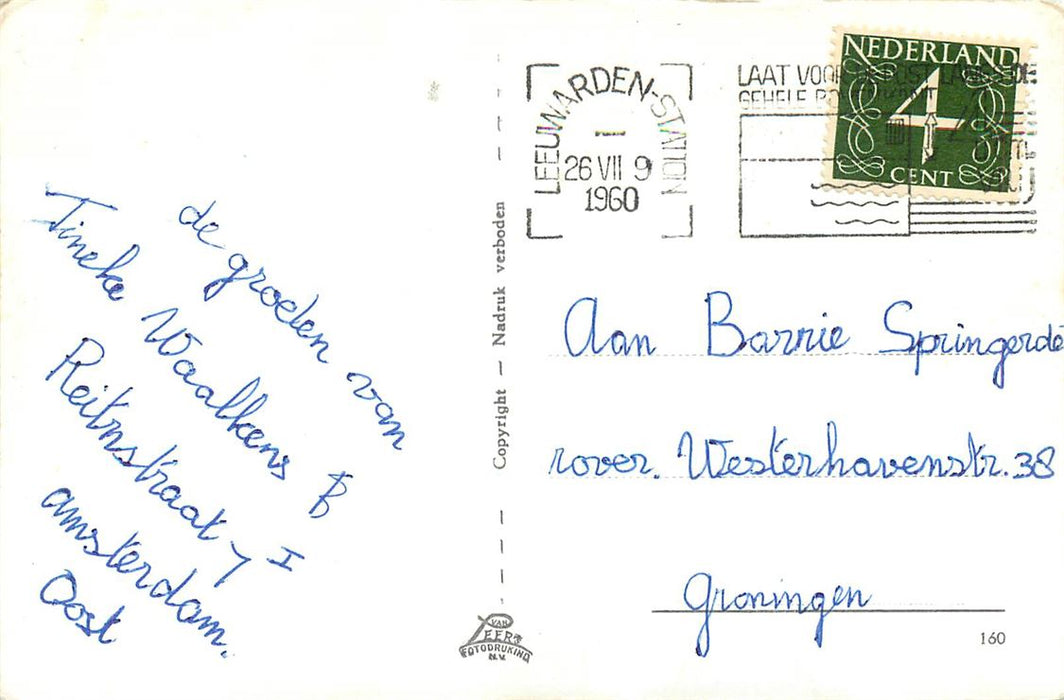 de groeten van
Tineke Waalkens B
Reitmstraat 7 I
amsterdam.
Oost
Copyright — Nadruk verboden
VAN
LEER'S
FOTODRUKIND
N.V.
LEEUWARDEN-STATION
26 VII 9
1960
LAAT VOOR DE POST LANGS DE
GEHELE ROUTE
NEDERLAND
4
CENT
Aan Barrie Springerde
rover. Westerhavenstr. 38
Groningen
160